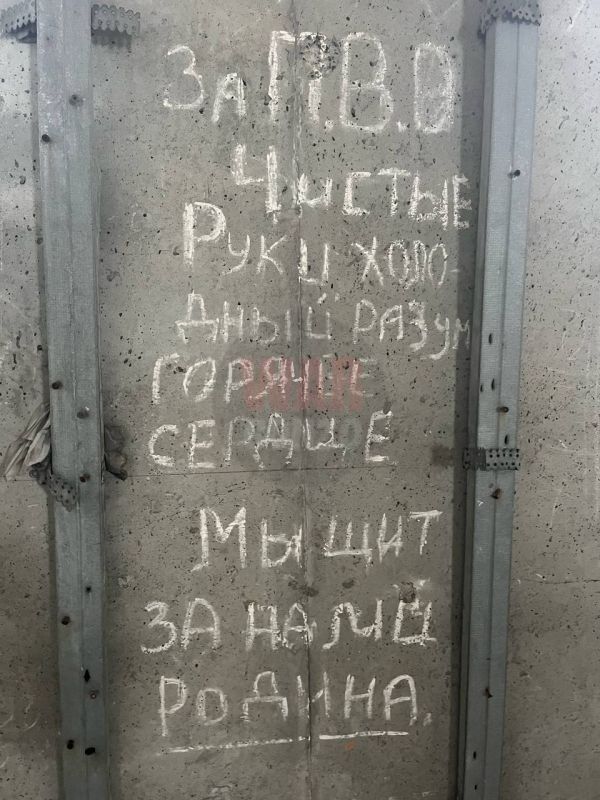 За П.В.О
Чистые
Руки холо-
дный разум
горячее
сердце
Мы щит
за нами
Родина.